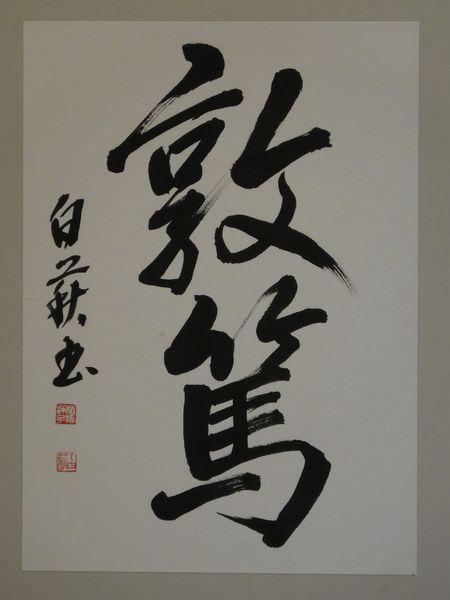 敦篤
白萩書